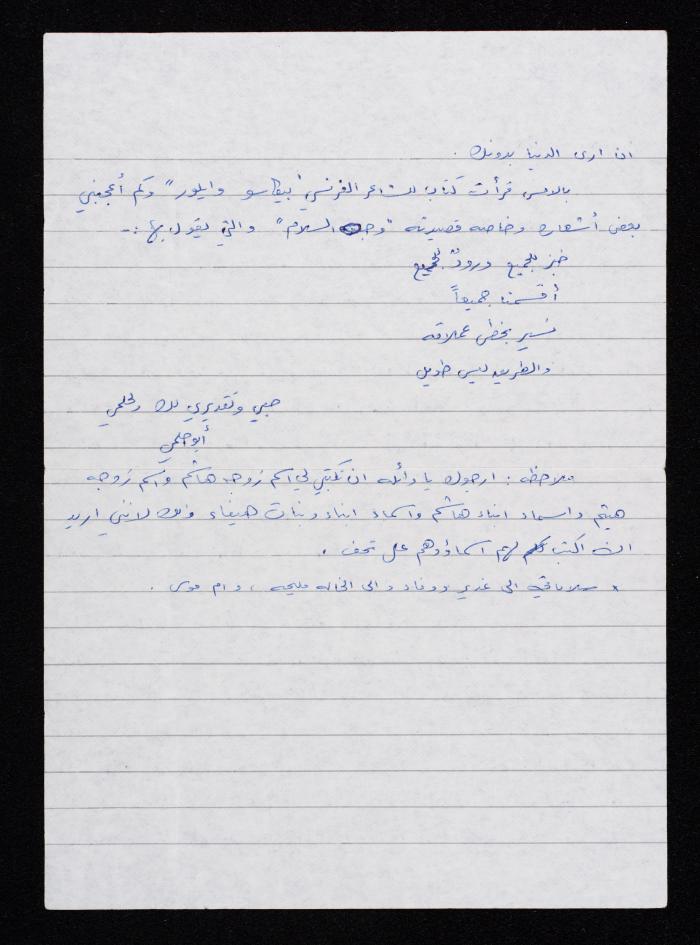 ان ارى الدنيا بدونك .
بالامس قرأت كتاب للشاعر الفرنسي "بيكاسو وايلور" وكم أعجبني
بعض أشعاره وخاصه قصيدته "وجه السلام" والتي يقول بها :-
خبز للجميع ورودٌ للجميع
أقسمنا جميعاً
نسير بخطى عملاقه
والطريق ليس طويل
حبي وتقديري لك ولحلمي
أبو حلمي
ملاحظه : ارجوك يا رائده ان تكتبي لي اسم زوجة هاشم واسم زوجه
هيثم واسماء ابناء هاشم واسماء ابناء وبنات هيفاء وذلك لانني اريد
ان اكتب لهم اسماؤهم على تحف .
* سلاماتي الى غدير ووفاء والى الخاله مليحه ، وام موسى .